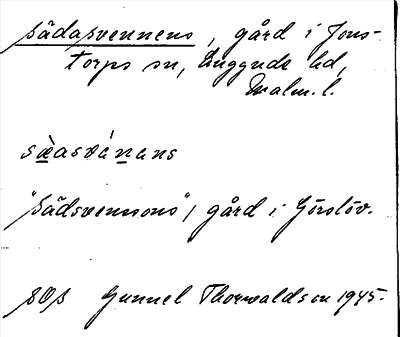 sädasvennens, gård i Jons-
torps sn, Luggude hd,
Malm. l.
sæ̀asvánans
"Sädsvennons", gård i Görslöv.
SOS Gunnel Thorwaldson 1945.